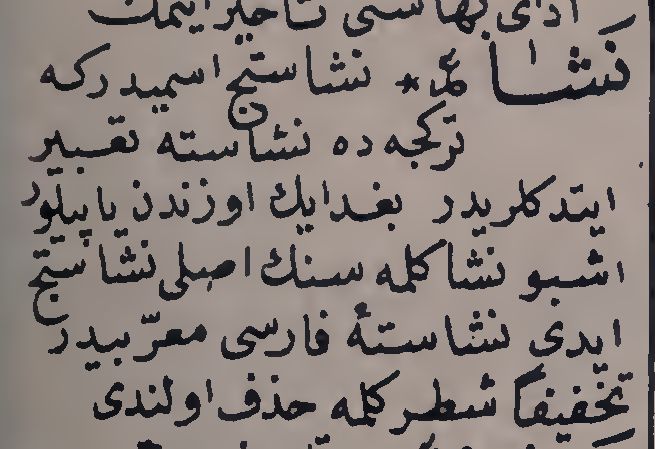 ادای بهاسنی تأخیر ایتمك
نَشَا نشاستج اسمیدركه
تركجه ده نشاسته تعبیر
ایتدكلریدر بغدایك اوزندن یاپیلور
اشبو نشا كلمه سنك اصلی نشاستج
ایدی نشاستهٔ فارسی معرّبیدر
تخفیفاً شطر كلمه حذف اولندی